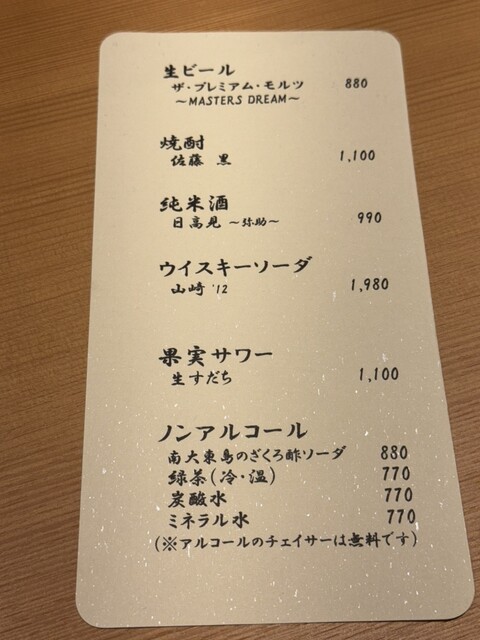 生ビール
ザ・プレミアム・モルツ 880
～MASTERS DREAM～
焼酎
佐藤 黒 1,100
純米酒
日高見 ～弥助～ 990
ウイスキーソーダ
山崎 '12 1,980
果実サワー
生すだち 1,100
ノンアルコール
南大東島のざくろ酢ソーダ 880
緑茶(冷・温) 770
炭酸水 770
ミネラル水 770
(※アルコールのチェイサーは無料です)